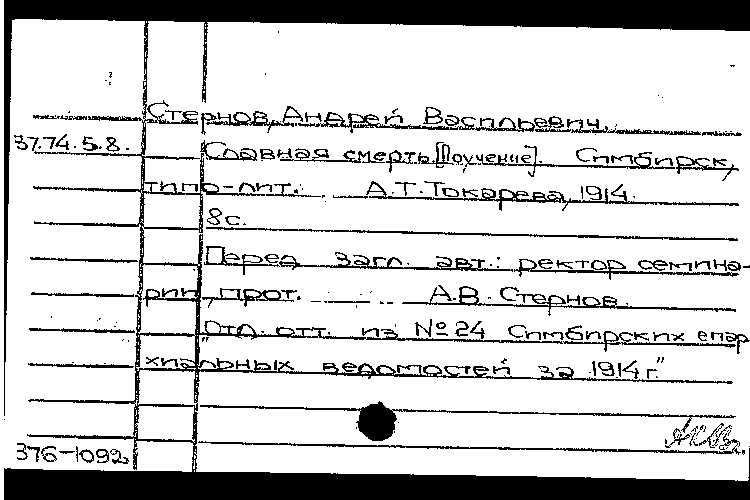 Стернов, Андрей Васильевич.
37.74.5.8.
Славная смерть. [Поучение]. Симбирск,
типо-лит. А.Т. Токарева, 1914.
8с.
Перед загл. авт.: ректор семина-
рии, прот. А.В. Стернов.
"Отд. отт. из №24 Симбирских епар
хиальных ведомостей за 1914 г."
376-1092